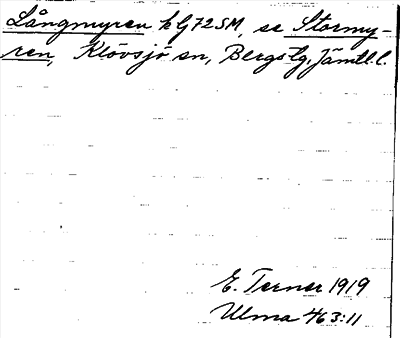 Långmyren hG72SM, se Stormy-
ren, Klövsjö sn, Bergs tg, Jämtl. l.
E. Terner 1919
Ulma 463:11